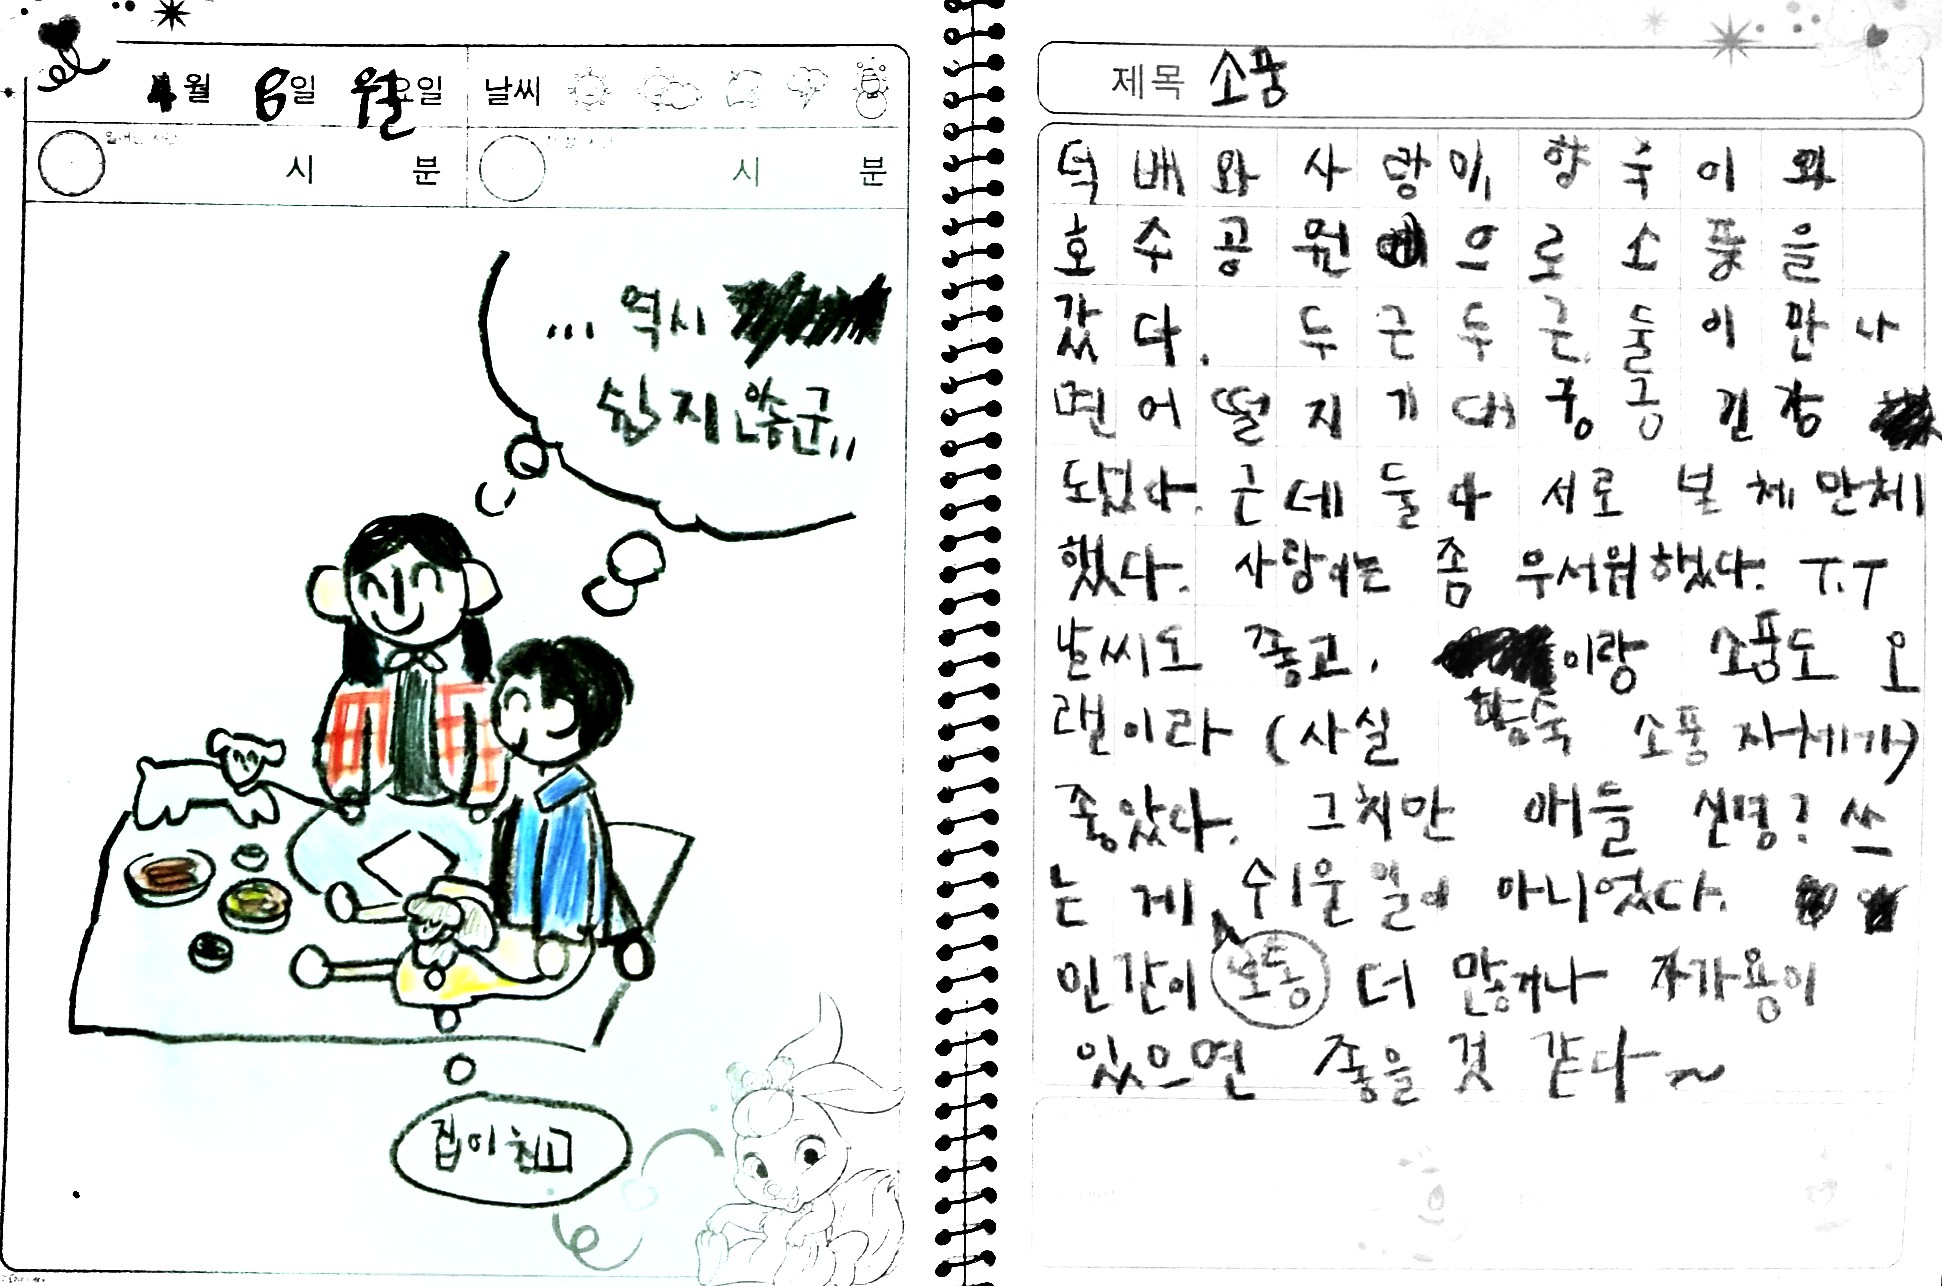 4월 6일 월요일 날씨
시 분 시 분
... 역시
쉽지 않군,,
집이 최고
제목 소풍
덕배와 사랑이, 향숙이와
호수공원으로 소풍을
갔다. 두근두근. 둘이 만나
면 어떨지 기대 궁금 긴장
도었다. 근데 둘다 서로 본체만체
했다. 사랑이는 좀 무서워했다. T.T
날씨도 좋고, 이랑 소풍도 오
랜이라 (사실 향숙 소풍 자체가)
좋았다. 그치만 애들 신경? 쓰
는 게 쉬운 일이 아니었다.
인간이 보통 더 많거나 자가용이
있으면 좋을 것 같다~